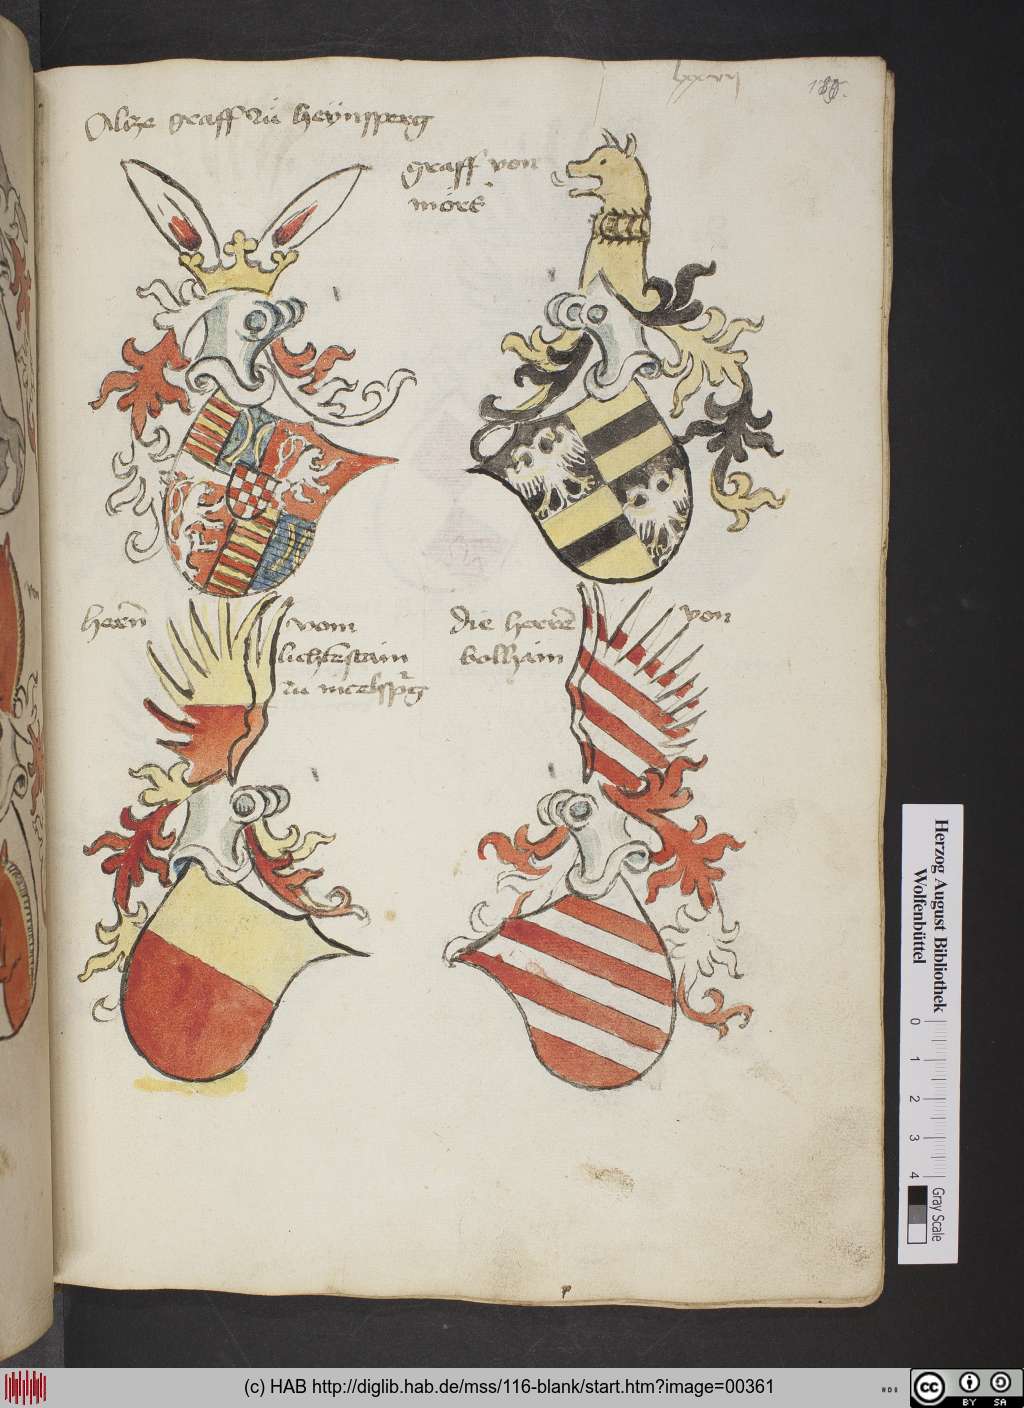 graff zů heÿnsperg
lxxxvij
graff von
mörs
herñ vom
liechtẽstain
zů nicelspʼg
die herrẽ von
bolhaim
Herzog August Bibliothek
Wolfenbüttel
0 1 2 3 4
Gray Scale
(c) HAB http://diglib.hab.de/mss/116-blank/start.htm?image=00361
cc BY SA